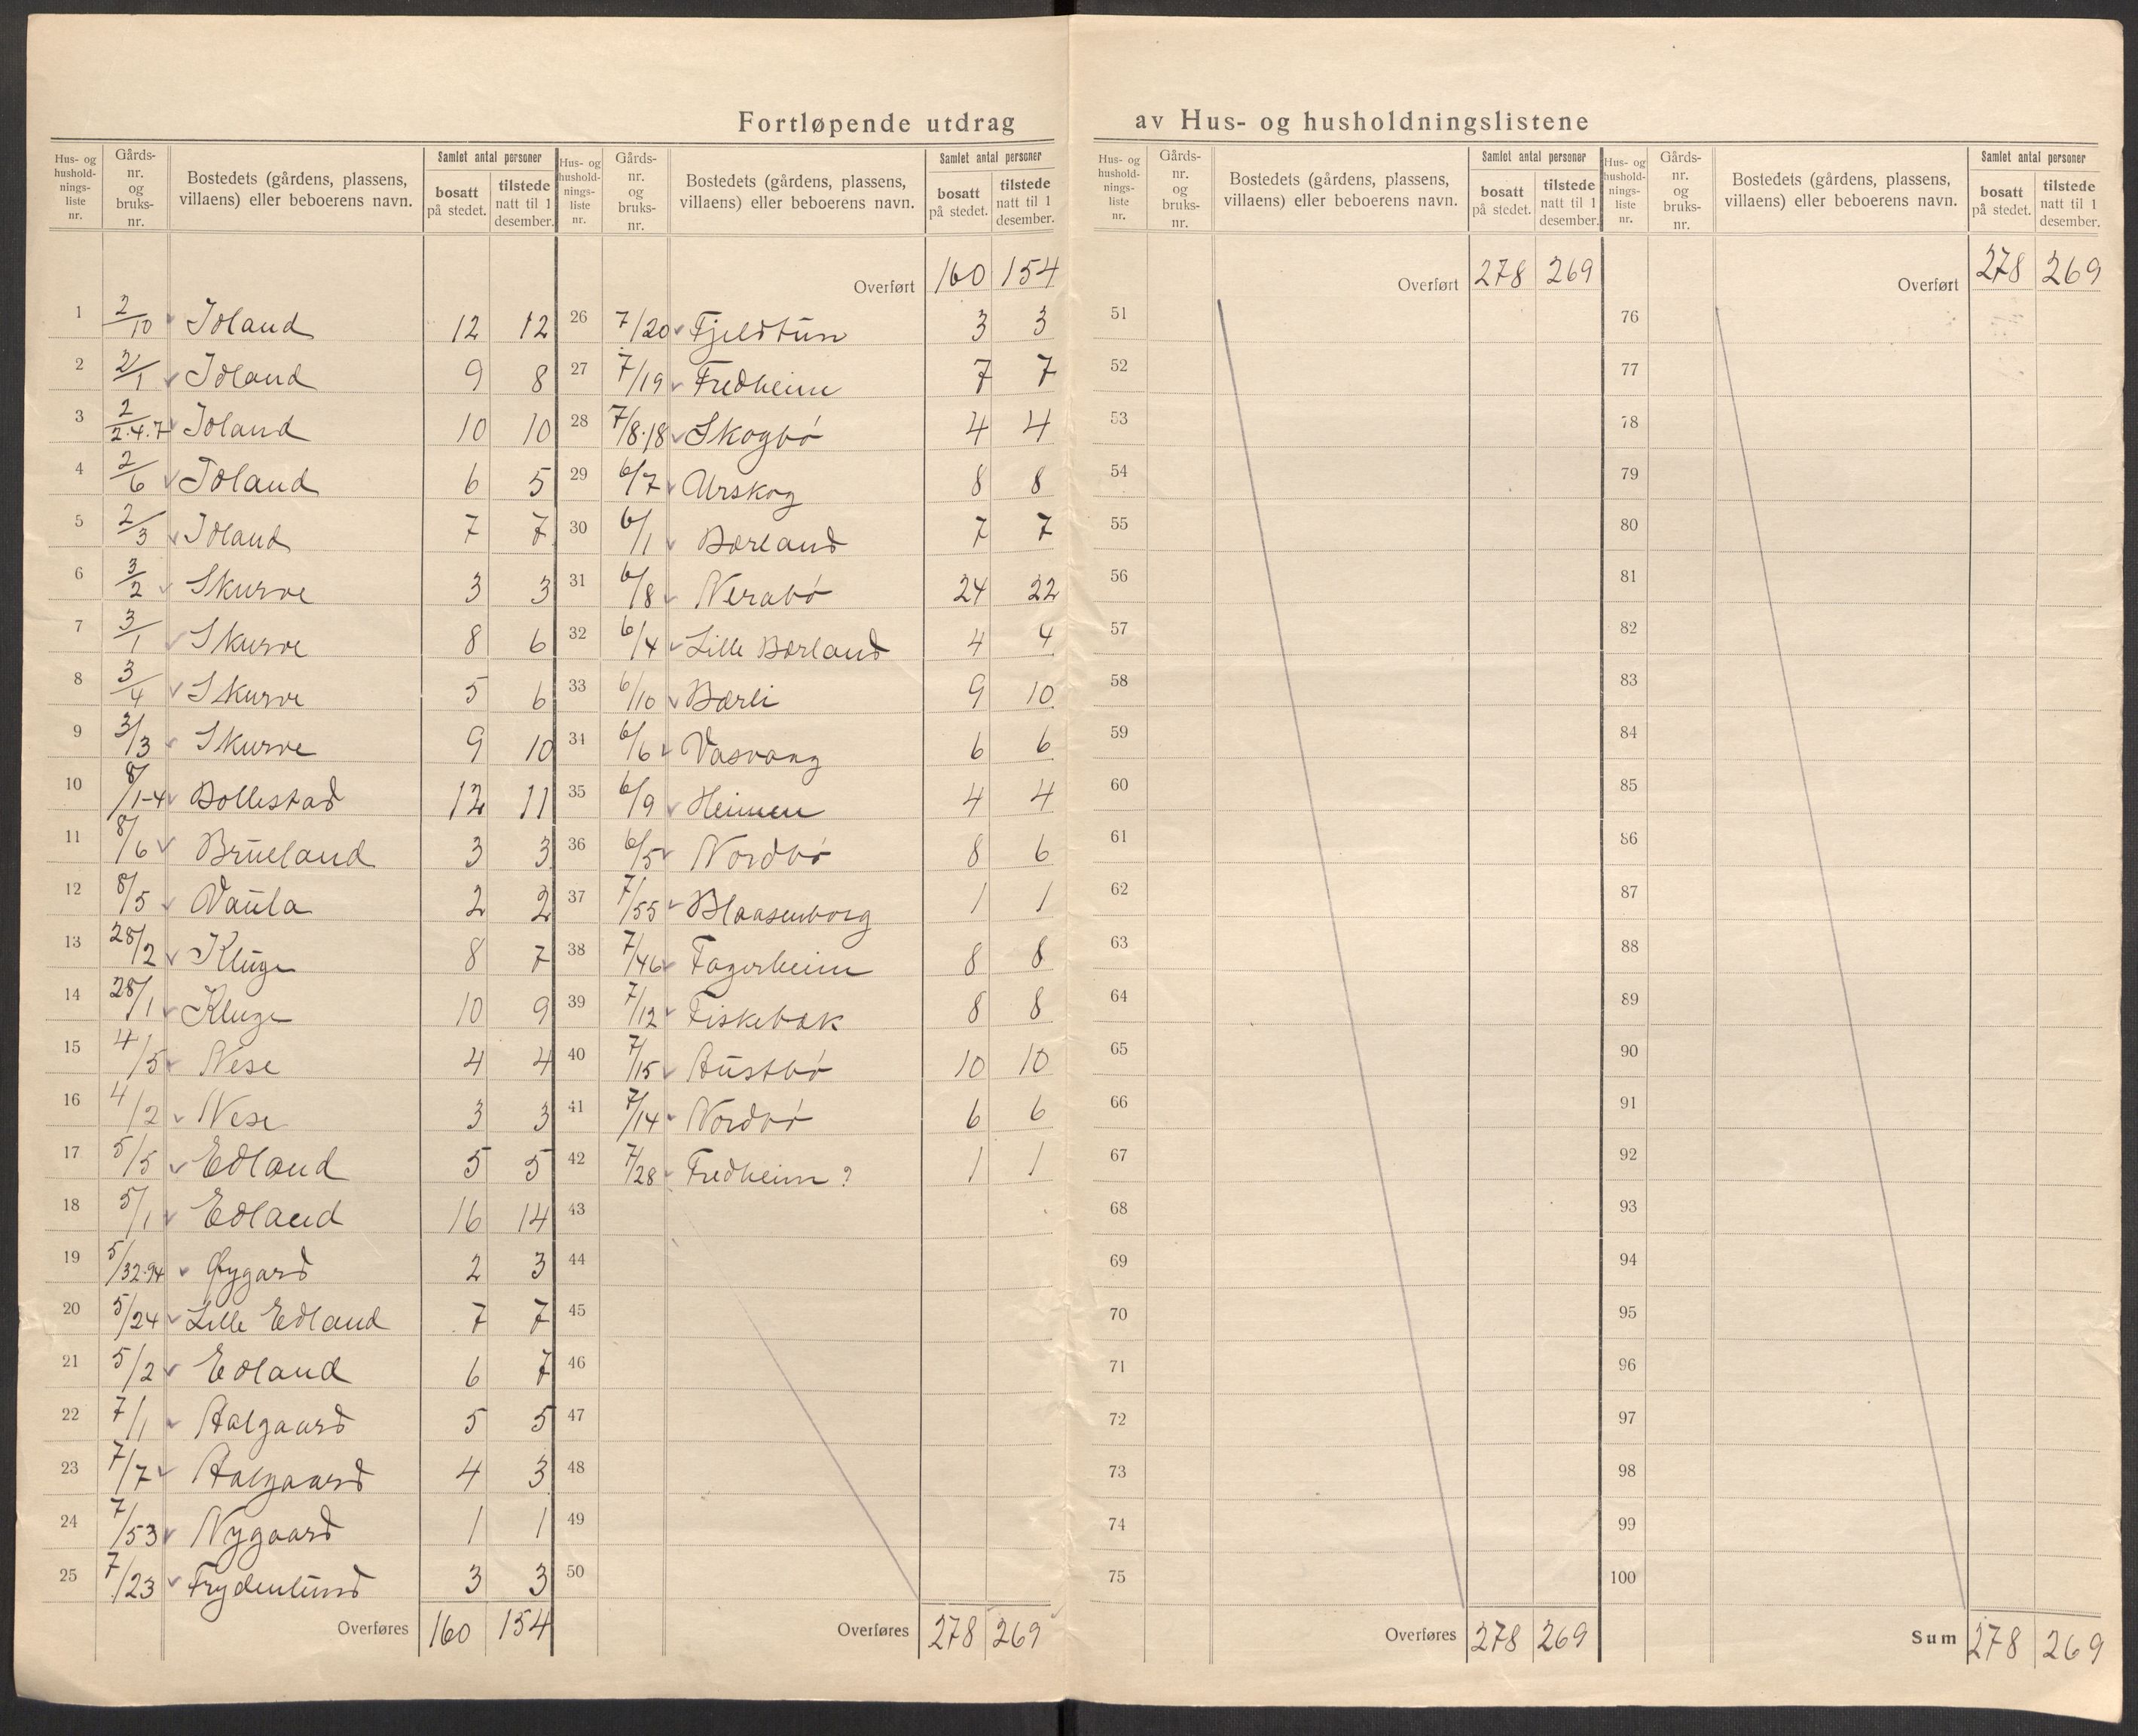 Fortløpende utdrag av Hus- og husholdningslistene
Hus- og hushold-nings-liste nr. Gårds-nr. og bruks-nr. Bostedets (gårdens, plassens, villaens) eller beboerens navn. Samlet antal personer bosatt på stedet. tilstede natt til 1 desember.
1 2/10 Idland 12 12
2 2/1 Idland 9 8
3 2/2.4.7 Idland 10 10
4 2/6 Idland 6 5
5 2/3 Idland 7 7
6 3/2 Skurve 3 3
7 3/1 Skurve 8 6
8 3/4 Skurve 5 6
9 3/3 Skurve 9 10
10 8/1-4 Bollestad 12 11
11 8/6 Brueland 3 3
12 8/5 Vaula 2 2
13 28/2 Kluge 8 7
14 28/1 Kluge 10 9
15 4/5 Nese 4 4
16 4/2 Nese 3 3
17 5/5 Edland 5 5
18 5/1 Edland 16 14
19 5/32.94 Øygard 2 3
20 5/24 Lille Edland 7 7
21 5/2 Edland 6 7
22 7/1 Aalgaard 5 5
23 7/7 Aalgaard 4 3
24 7/53 Nygaard 1 1
25 7/23 Frydenlund 3 3
Overføres 160 154
Hus- og hushold-nings-liste nr. Gårds-nr. og bruks-nr. Bostedets (gårdens, plassens, villaens) eller beboerens navn. Samlet antal personer bosatt på stedet. tilstede natt til 1 desember.
Overført 160 154
26 7/20 Fjeldtun 3 3
27 7/19 Fredheim 7 7
28 7/8.18 Skogbø 4 4
29 6/7 Urskog 8 8
30 6/1 Bærland 7 7
31 6/8 Nerabø 24 22
32 6/4 Lille Bærland 4 4
33 6/10 Bærli 9 10
34 6/6 Vasvang 6 6
35 6/9 Heimen 4 4
36 6/5 Nordbø 8 6
37 7/55 Blaasenborg 1 1
38 7/46 Fagerheim 8 8
39 7/12 Fiskebæk 8 8
40 7/15 Austbø 10 10
41 7/14 Nordbø 6 6
42 7/28 Fredheim ? 1 1
43
44
45
46
47
48
49
50
Overføres 278 269
Hus- og hushold-nings-liste nr. Gårds-nr. og bruks-nr. Bostedets (gårdens, plassens, villaens) eller beboerens navn. Samlet antal personer bosatt på stedet. tilstede natt til 1 desember.
Overført 278 269
51
52
53
54
55
56
57
58
59
60
61
62
63
64
65
66
67
68
69
70
71
72
73
74
75
Overføres 278 269
Hus- og hushold-nings-liste nr. Gårds-nr. og bruks-nr. Bostedets (gårdens, plassens, villaens) eller beboerens navn. Samlet antal personer bosatt på stedet. tilstede natt til 1 desember.
Overført 278 269
76
77
78
79
80
81
82
83
84
85
86
87
88
89
90
91
92
93
94
95
96
97
98
99
100
Sum 278 269